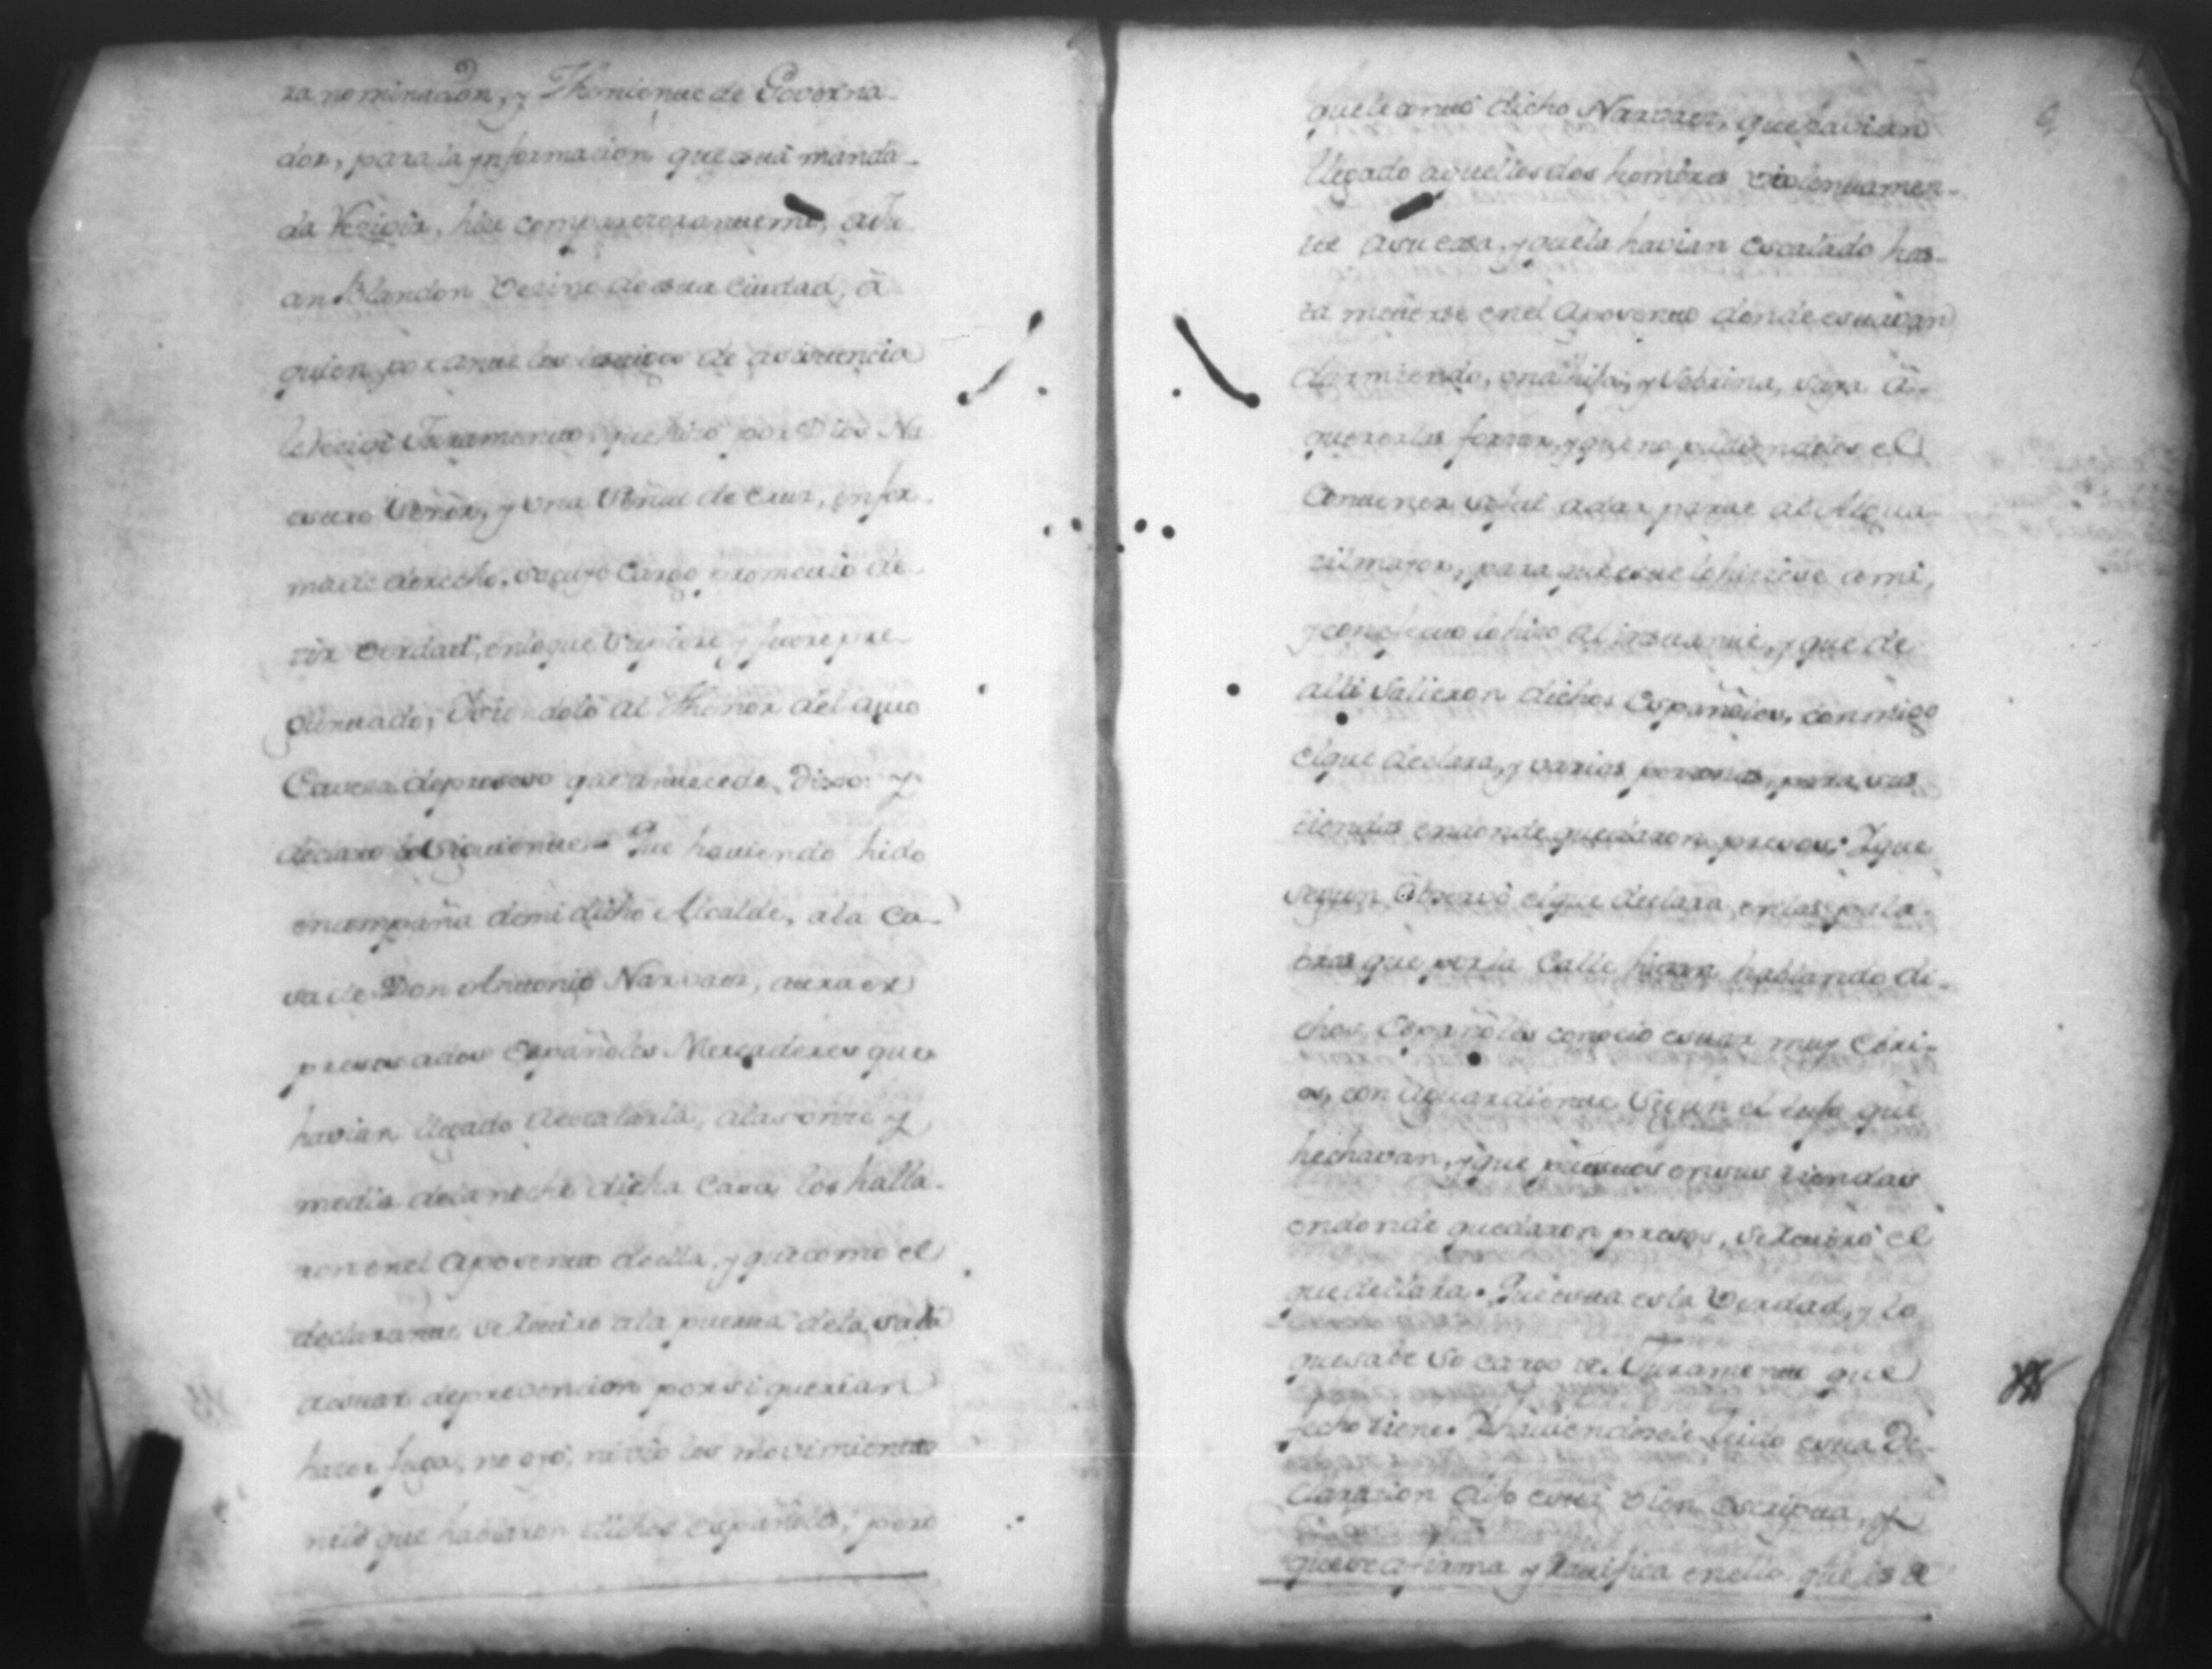 ra nominacion, y Theniente de Governa-
dor, para la ynformacion que está manda-
da Rezibir, hize comparezer ante mi, a Ju-
an Blandon Vezino de esta Ciudad, â
quien por ante los testigos de asistencia
le Rezivi Juramento, que hizo por Dios Nu
estro Señor, y una Señal de Cruz, en for-
ma de derecho, so cuyo cargo prometio de-
zir verdad, en lo que supiere y fuere pre-
guntado, y siendolo al Thenor del auto
Caveza de proceso que antecede, Dixo: y
declaro lo siguiente= Que haviendo hido
en compañia de mi dicho Alcalde, a la ca-
sa de Don Antonio Narvaez, a traer
presos a dos Españoles Mercaderes que
havian llegado a escalarla, a las onze y
media de la noche dicha casa, los halla-
ron en el Aposento de ella, y que como el
declarante se Retiro a la puerta de la sala
a estar de prevencion por si querian
hazer fuga, no oyó, ni vio los movimientos
ni lo que hablaron dichos españoles, pero
9
que le conto dicho Narvaez, que havian
llegado aquellos dos hombres violentamen-
te a su casa, y que la havian escalado has-
ta meterse en el Aposento donde estavan
durmiendo, una hija, y Sobrina, suya â
quererlas forzar, y que no pudiendolos el
Contener salio a dar parte al Algua-
zil mayor, para que este lo hiciese a mi,
y con efecto lo hizo al instante, y que de
alli salieron dichos Españoles, conmigo
el que declara, y varias personas, para sus
tiendas en donde quedaron presos: Y que
segun Observó el que declara, en las pala-
bras que por la Calle hivan hablando di-
chos Españoles conocio estar muy Ebri-
os, con Aguardiente Segun el tufo que
hechavan, y que puestos en sus tiendas
en donde quedaron presos, se Retiró el
que declara. Que esta es la Verdad, y lo
que save so cargo el Juramento que
fecho tiene. Y haviendosele leido esta De-
claracion dijo está vien escripta, y
que se afirma y Ratifica en ella que es de